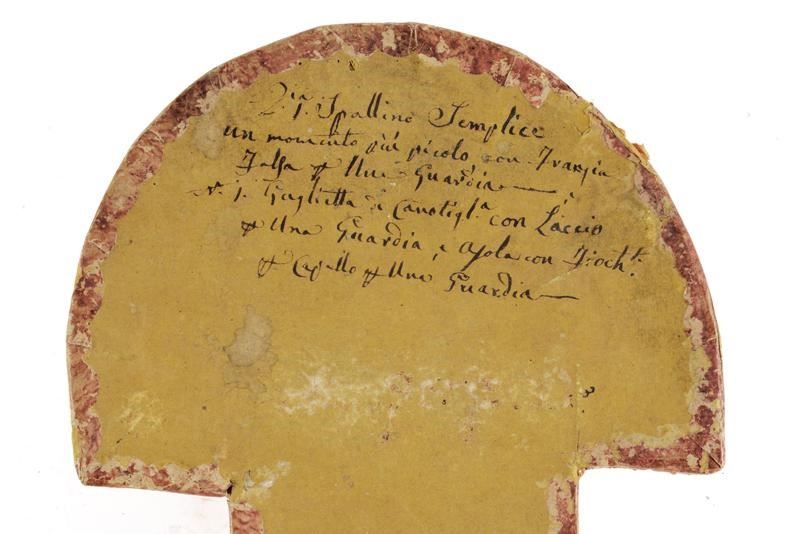 Spallino Semplice
un momento più picolo con Frangia
Falsa p Una Guardia
N. 1. Paglietta di Canotigl.a con Laccio
p Una Guardia, e Asola con Fioch.
p Capello p Una Guardia